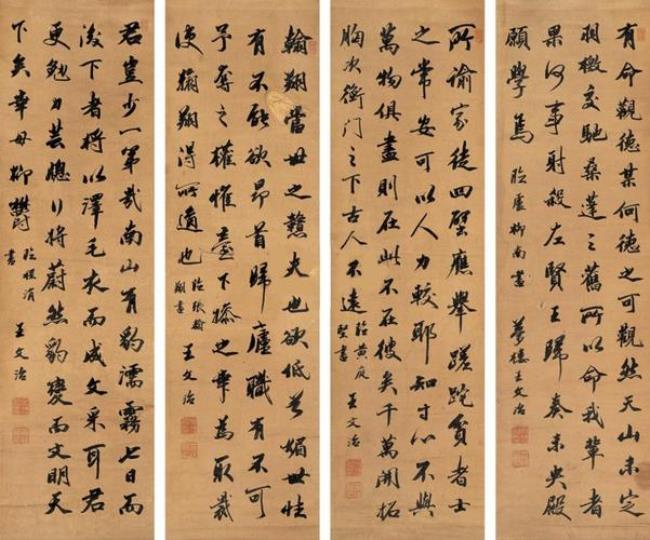 有命觀德某何德之可觀然天山未定
羽檄交馳桑蓬之舊所以命我輩者
果何事射殺左賢王歸奏未央殿
願學焉 臨盧柳南書 夢樓王文治
所諭家徒四壁應舉蹉跎貧者士
之常安可以人力較耶知寸心不與
萬物俱盡則在此不在彼矣千萬開拓
胸次衡門之下古人不遠 臨黃庭
堅書 王文治
翰翔當世之戇夫也欲低首媚世性
有不能欲昂首歸廬職有不可
予奪之權惟臺下操之幸為取裁
使翰翔得所適也 臨張翰
翔書 王文治
君豈少一第哉南山有豹濡霧七日而
後下者將以澤毛衣而成文采耳君
更勉力芸牕行將蔚然豹變而文明天
下矣幸毋抑鬱 臨
書 王文治